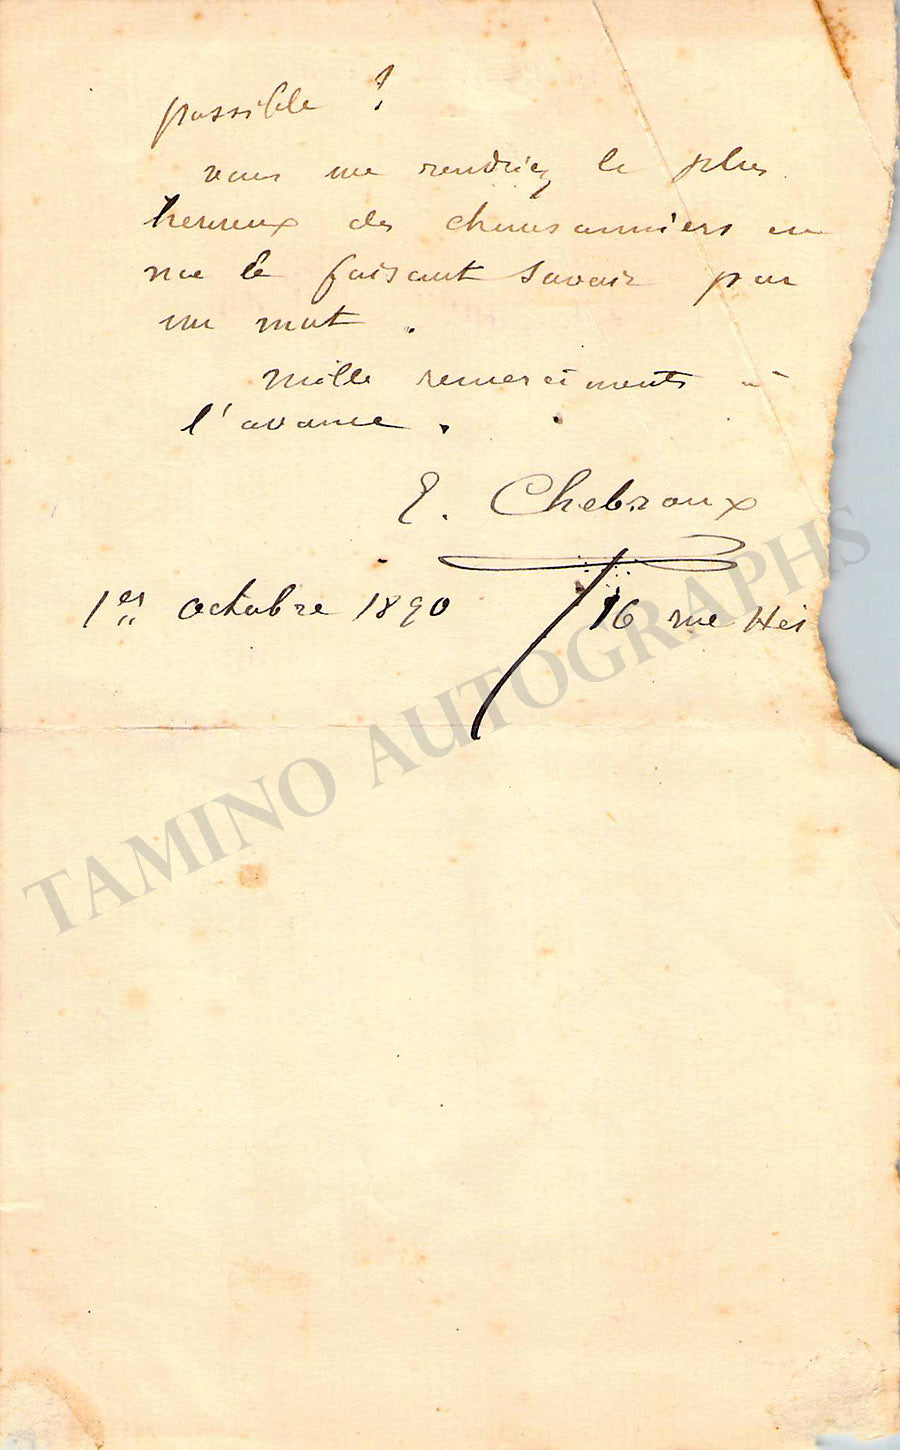 possible ?
vous me rendriez le plus
heureux des chansonniers en
me le faisant savoir par
un mot .
Mille remerciments à
l'avance .
E. Chebroux
1er octobre 1890 16 rue Hér
TAMINO AUTOGRAPHS